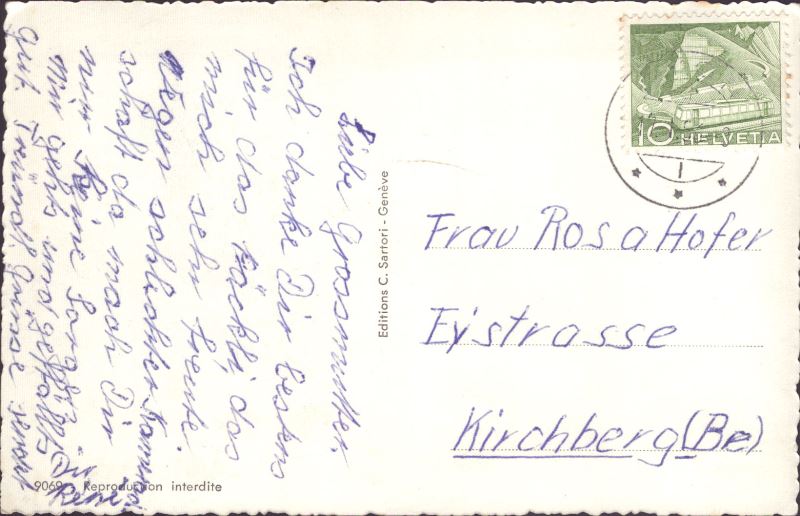 Liebe Grossmutter.
Ich danke Dir bestens
für das Päckli das
mich sehr freute.
Wegen schlechter Kameradschaft
da, mach Dir
nur keine Sorgen
Mir gehts und gefällts
gut. Grüsse senort
René
Editions C. Sartori - Genève
9069 - Reproduction interdite
10 HELVETIA
Frau Rosa Hofer
Eystrasse
Kirchberg (Be)